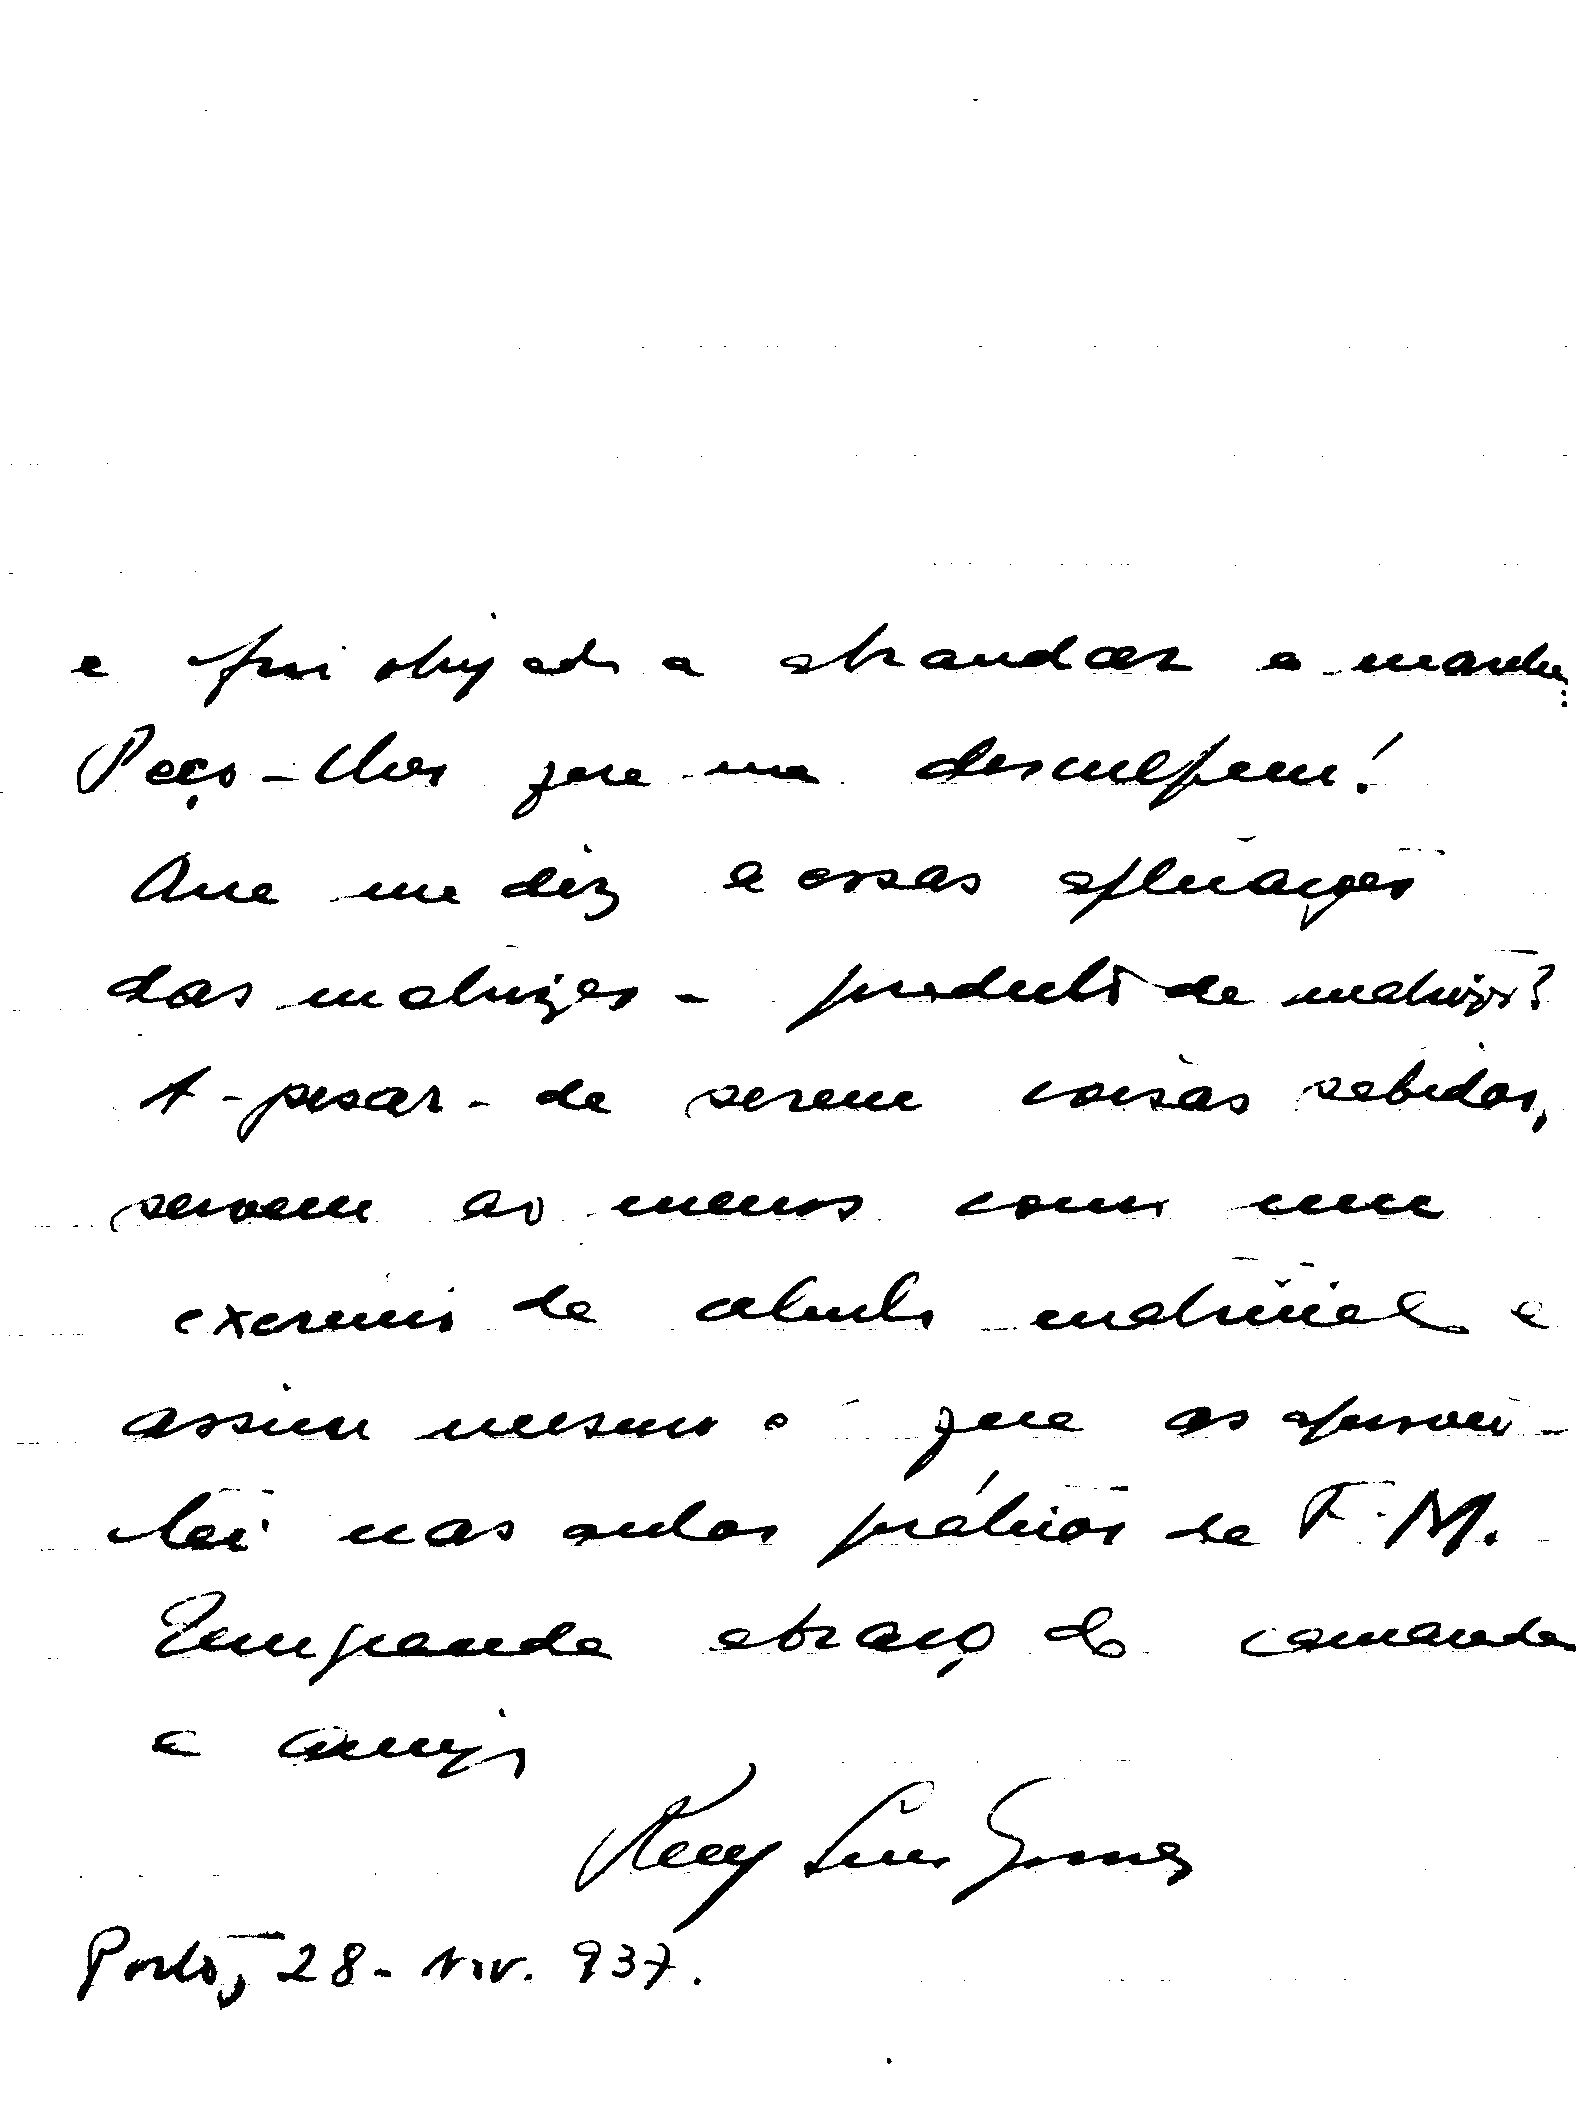 e fui obrigado a abrandar a marcha...
Peço-lhes que me desculpem!
Que me diz a essas aplicações
das matrizes - produto de matrizes?
A-pesar-de serem coisas sabidas,
servem ao menos como um
exercício de cálculo matricial e
assim mesmo é que as aprovei-
tei nas aulas práticas de F. M.
Um grande abraço do camarada
e amigo
Ruy Luis Gomes
Porto, 28-Nov. 937.